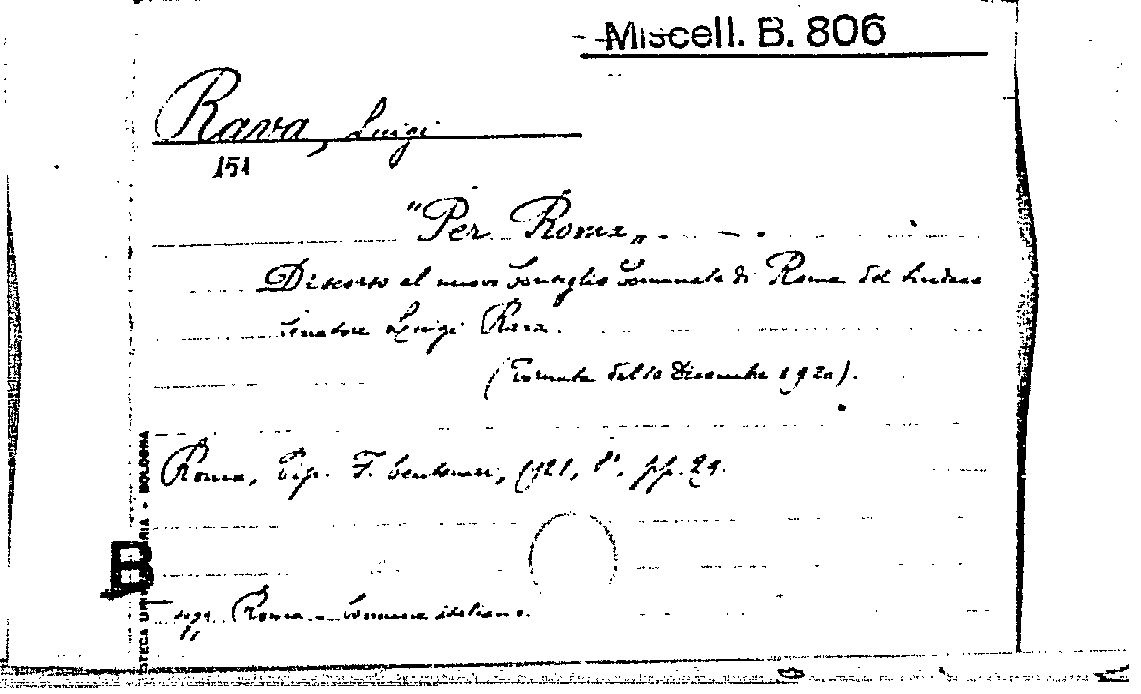 Miscell. B. 806
Rava, Luigi
151
"Per Roma„
Discorso al nuovo Consiglio Comunale di Roma del Sindaco
Senatore Luigi Rava.
(Tornata del 10 Dicembre 1920).
Roma, Tip. F. Centenari, 1921, 8°, pp. 29.
sogg. Roma - Comune italiano.
BOLOGNA